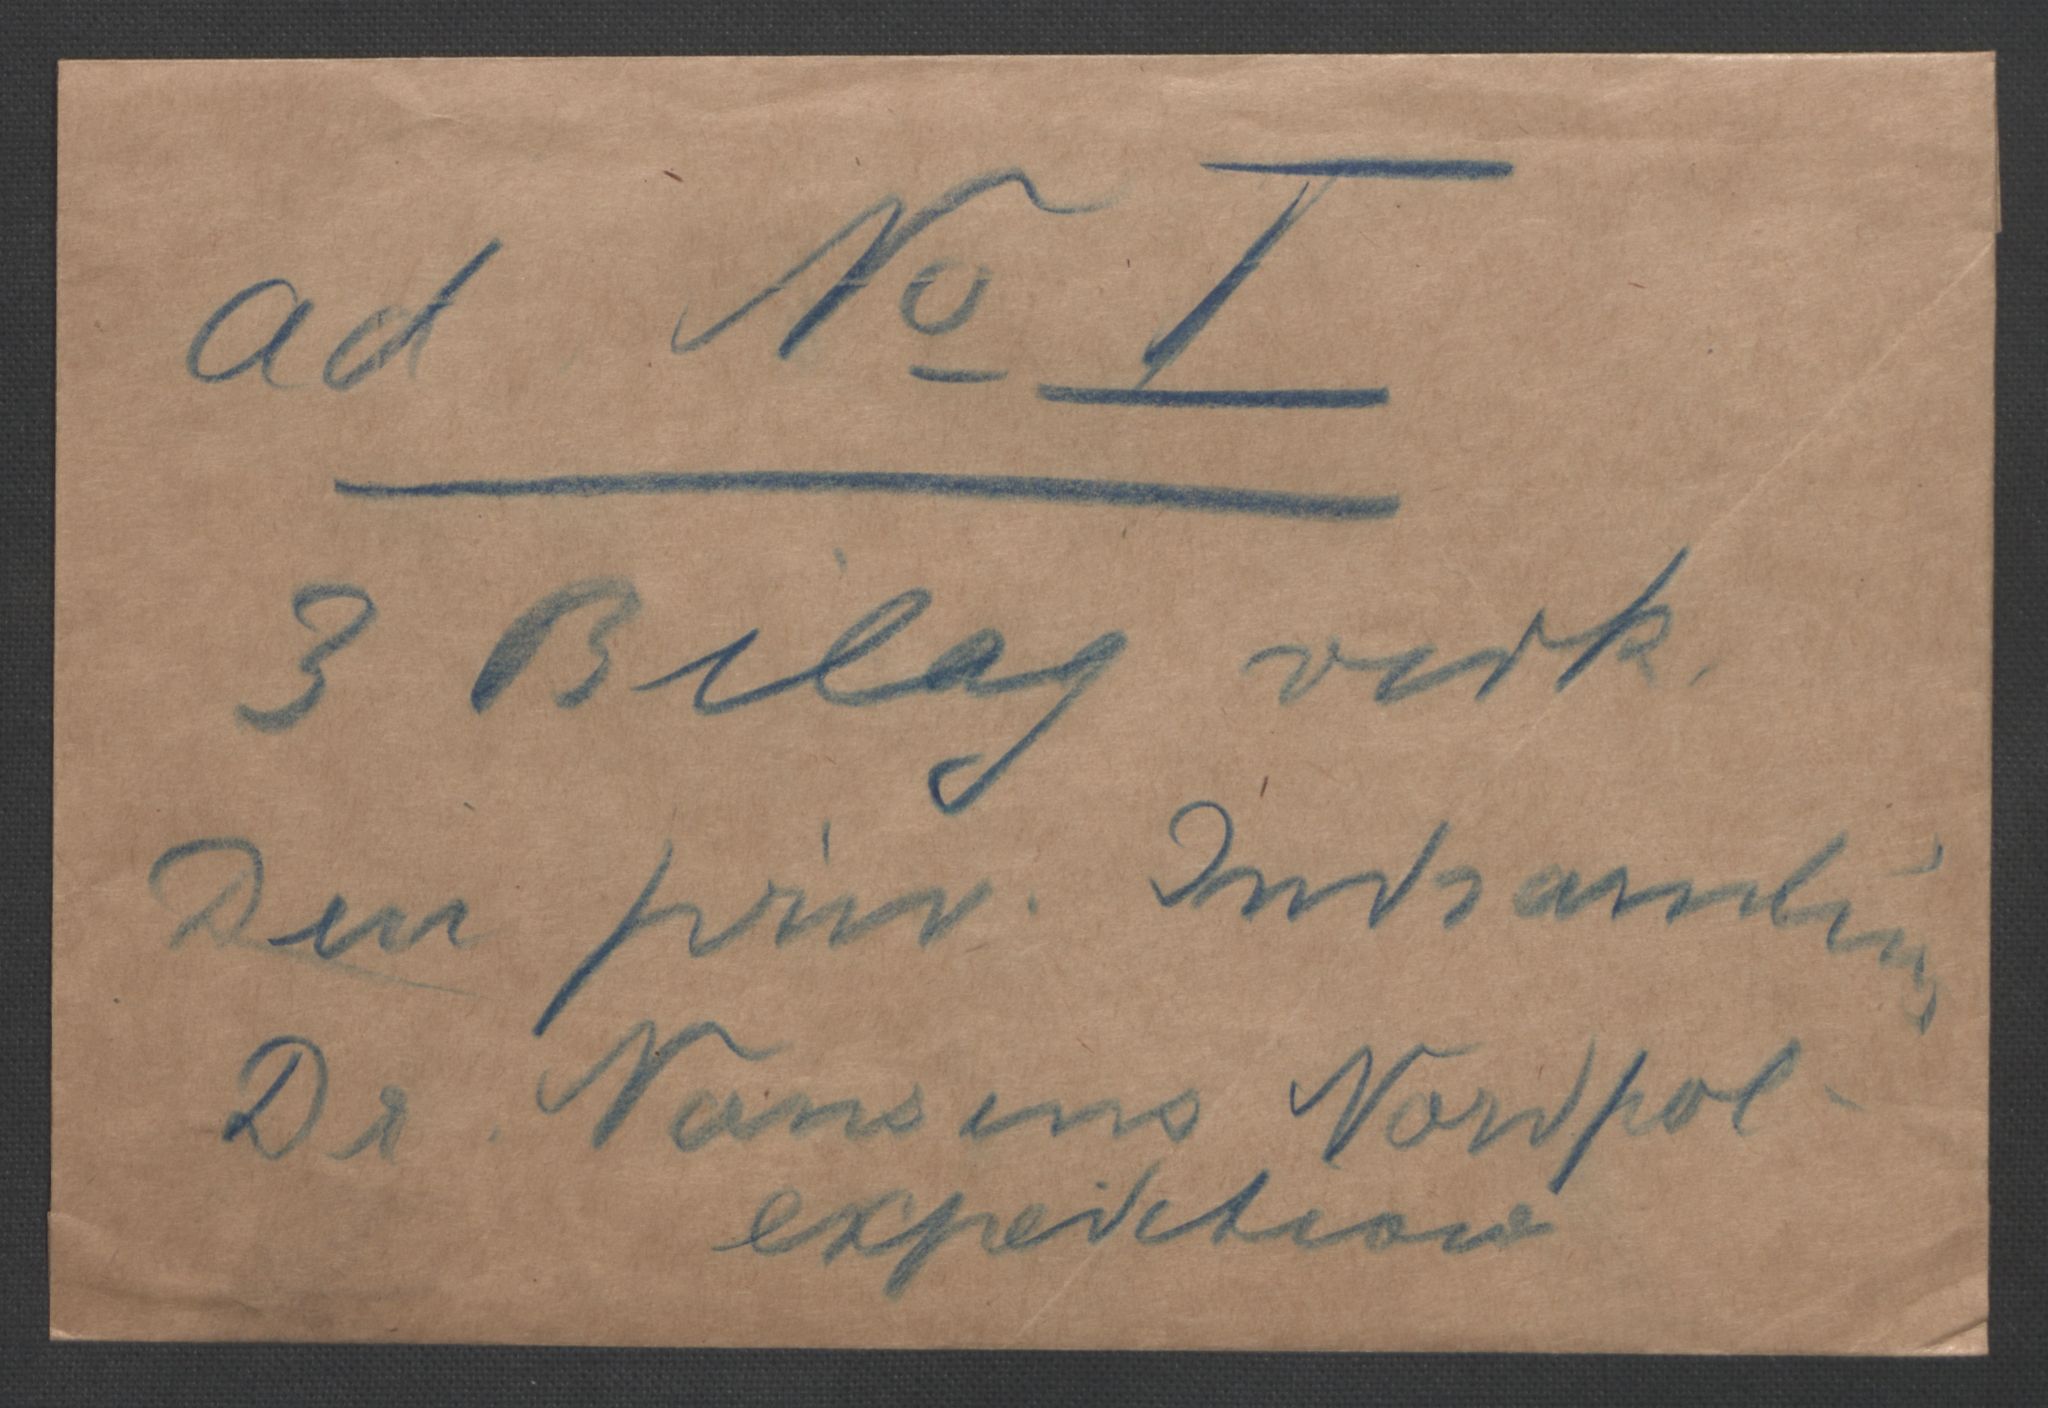 ad No I
3 Bilag vedk.
Den priv. Indsamling
Dr. Nansens Nordpol-
expedition